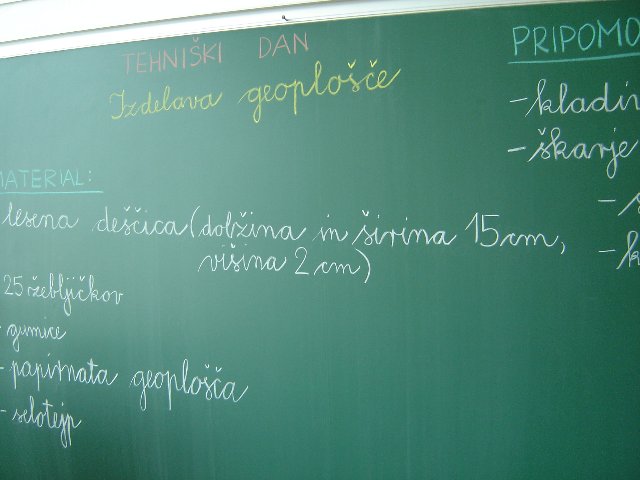 TEHNIŠKI DAN
Izdelava geoplošče
MATERIAL:
lesena deščica (dolžina in širina 15 cm,
višina 2 cm)
25 žebljičkov
- gumice
- papirnata geoplošča
- selotejp
PRIPOMO
- kladi
- škarje